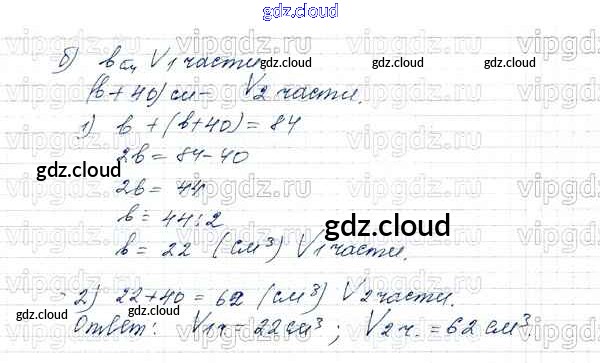 gdz.cloud
б) в см V 1 части
gdz.cloud gdz.cloud gdz.cloud
(в + 40) см - V 2 части.
1) в + (в+40) = 84
2в = 84-40
gdz.cloud
gdz.cloud
2в = 44
в = 44:2
gdz.cloud
в = 22 (см³) V 1 части.
2) 22+40 = 62 (см³) V 2 части.
Ответ: V 1 ч = 22 см³; V 2 ч. = 62 см³.
gdz.cloud gdz.cloud gdz.cloud
vipgdz.ru vipgdz.ru vipgdz.ru